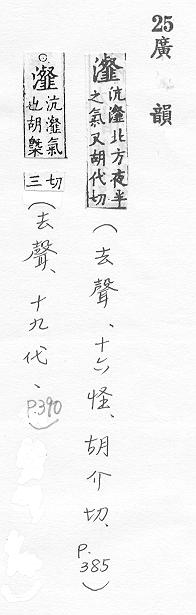 25廣韻
瀣沆瀣北方夜半之氣又胡代切(去聲、十六怪、胡介切、P.385)
瀣沆瀣氣也胡槩切三(去聲、十九代、P.390)